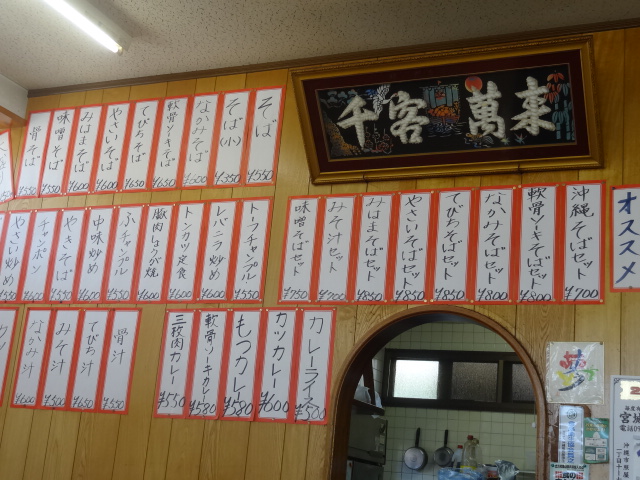 千客萬来
そば ¥550
そば(小) ¥350
なかみそば
軟骨ソーキそば ¥650
てびちそば ¥650
やさいそば ¥600
みはまそば ¥600
味噌そば ¥550
骨そば ¥550
トーフチャンプル ¥550
レバニラ炒め ¥600
トンカツ定食 ¥600
豚肉しょうが焼 ¥600
ふチャンプル
中味炒め
やきそば
チャンポン
やさい炒め
オススメ
沖縄そばセット ¥700
軟骨ソーキそばセット ¥800
なかみそばセット ¥800
てびちそばセット ¥800
やさいそばセット ¥850
みはまそばセット ¥850
みそ汁セット ¥700
味噌そばセット ¥750
カレーライス ¥500
カツカレー ¥600
もつカレー ¥580
軟骨ソーキカレー ¥580
三枚肉カレー ¥550
骨汁 ¥550
てびち汁
みそ汁
なかみ汁 ¥600
夢
宮城